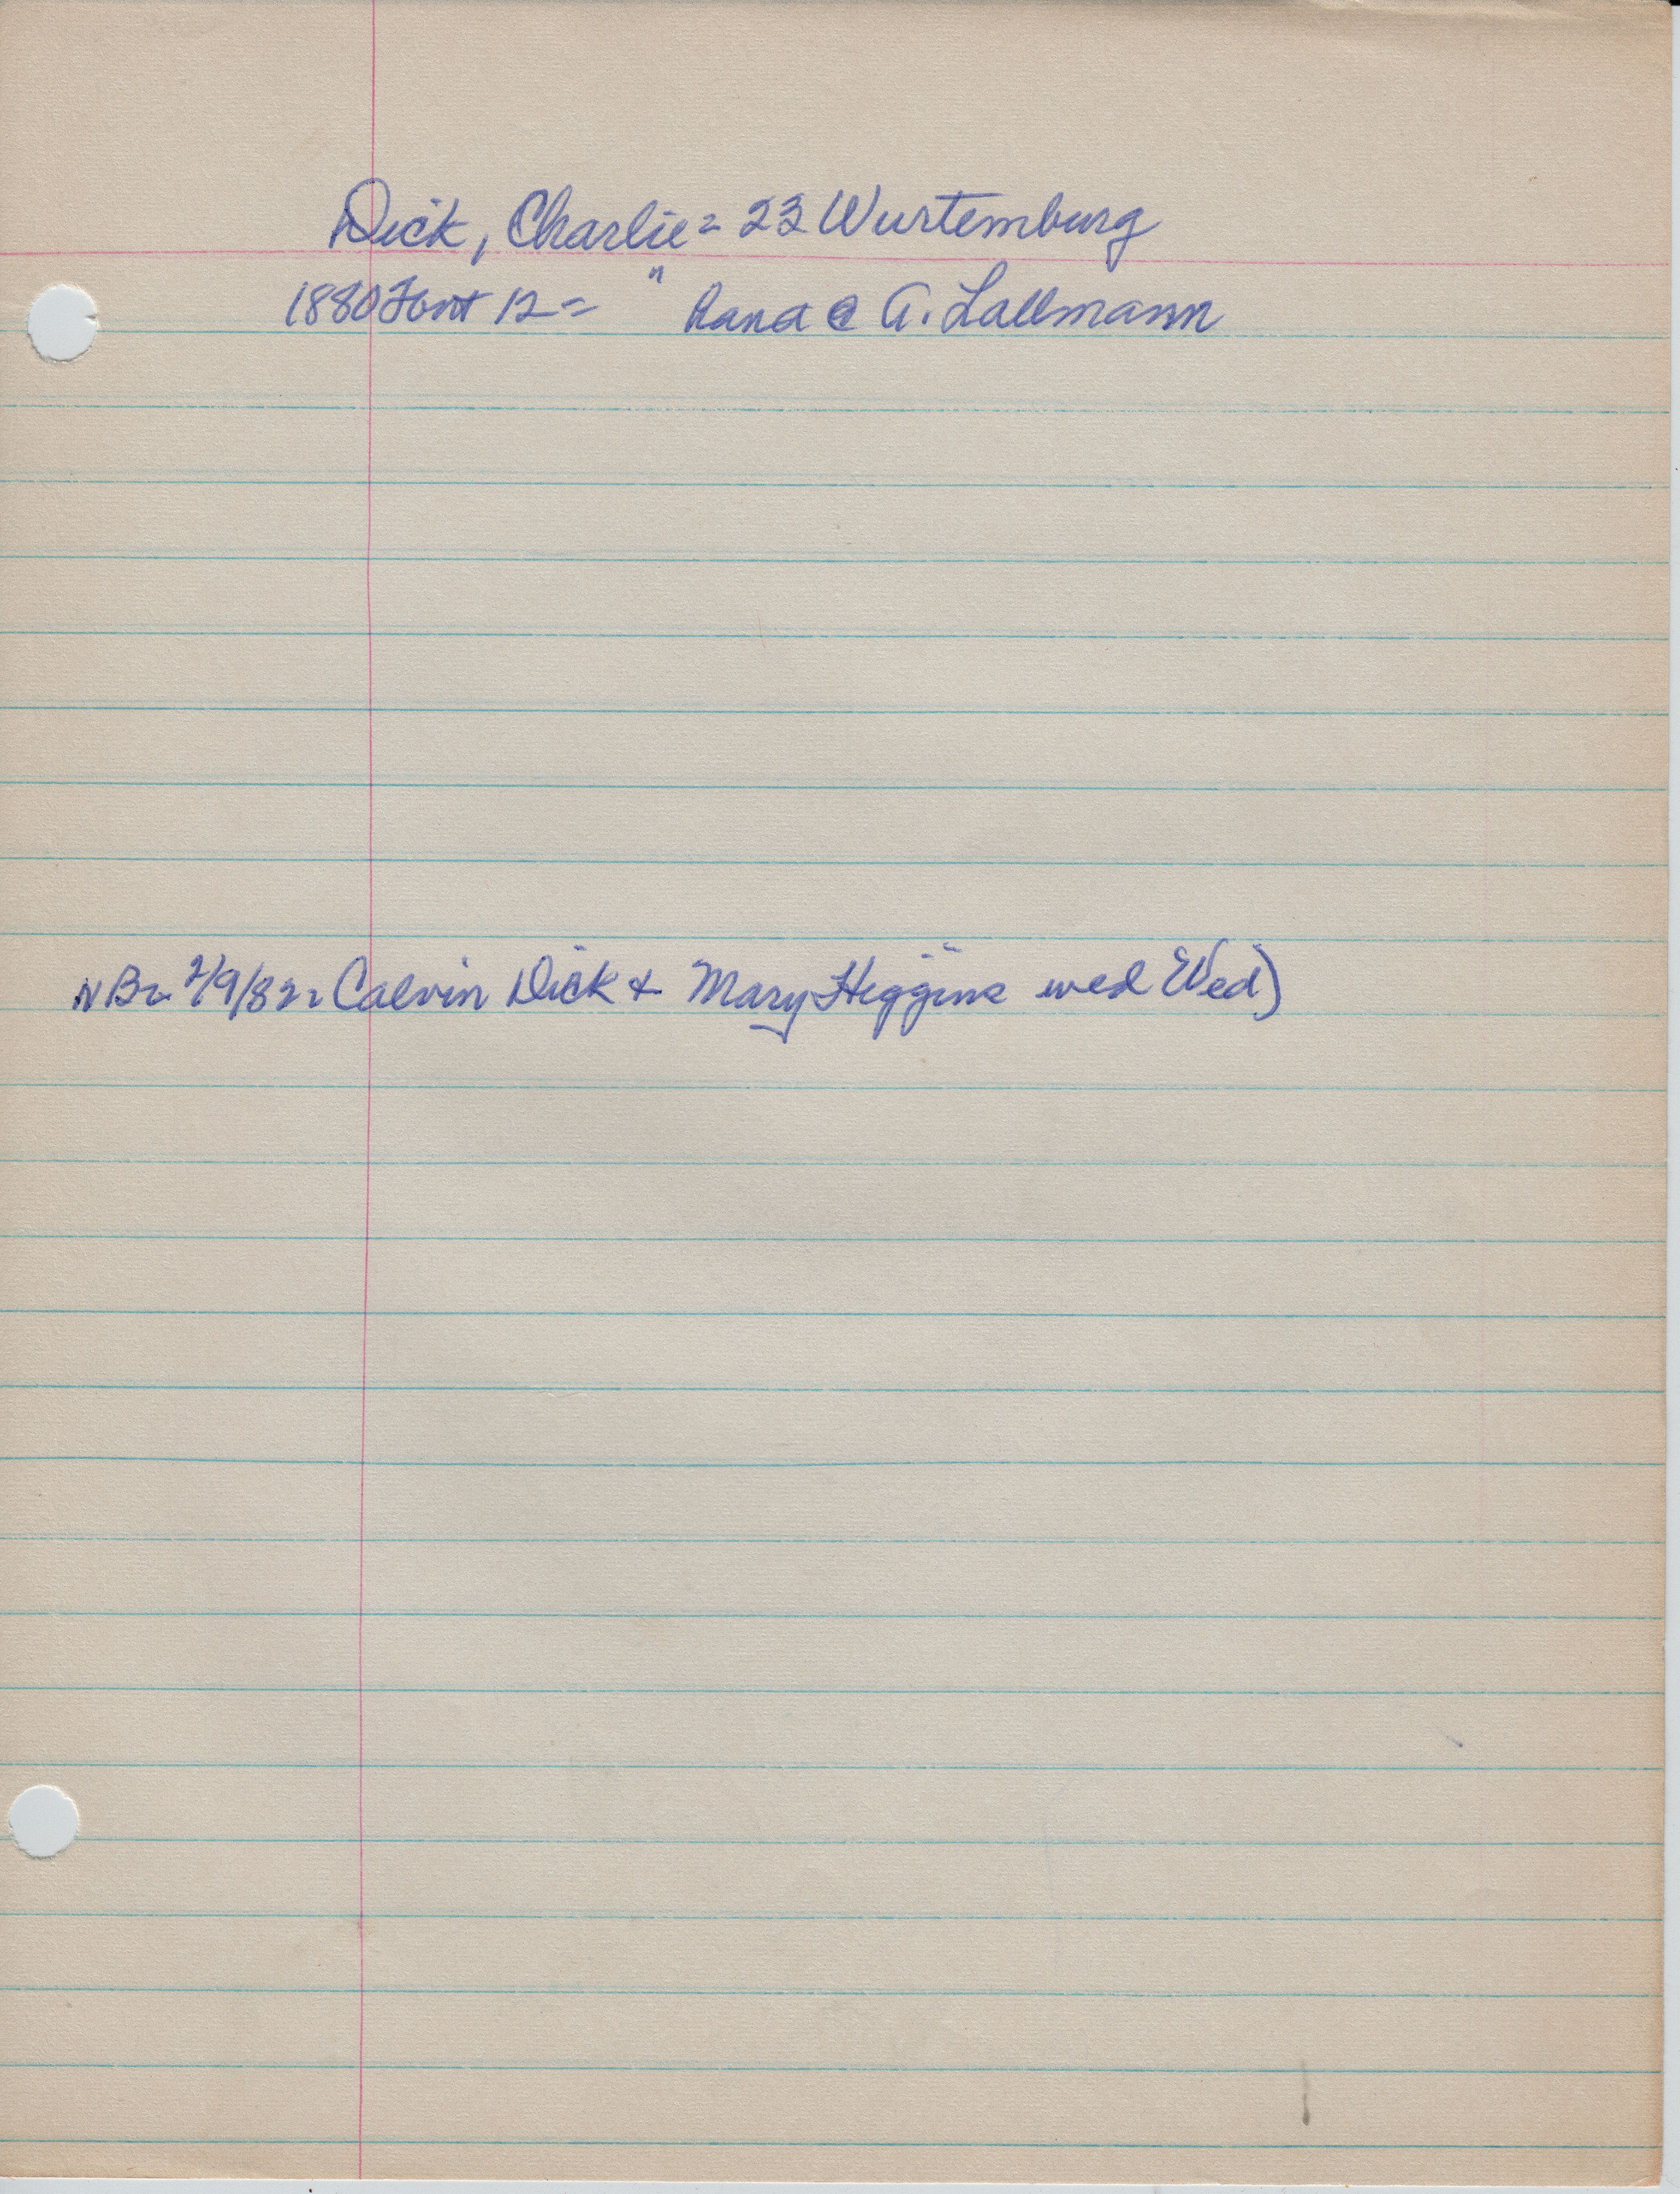 Dick, Charlie = 23 Wurtemburg
1880 12 = " hand @ A. Lallmann
NB = 2/9/82 = Calvin Dick & Mary Higgins wed Wed)